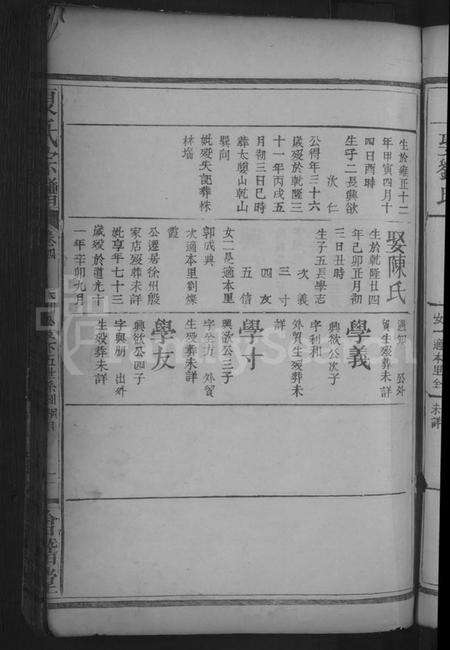 生於雍正十二
年甲寅四月十
四日酉時
生子二長興欲
次仁
公得年三十六
歲歿於乾隆三
十一年丙戌五
月初三日巳時
葬太山乾山
巽向
妣歿失記葬株
林塘
娶陳氏
生於乾隆廿四
年己卯正月初
三日丑時
生子五長學志
次義
三寸
四友
五信
女二長適本里
郭成典
次適本里劉燦
霞
公遷居徐州殷
家店歿葬未詳
妣享年七十三
歲歿於道光十
一年辛卯九月
公外
貿生歿葬未詳
學義
興欲公次子
字利和
外貿生歿葬未
詳
學寸
興欲公三子
外貿
生歿葬未詳
學友
興欲公四子
字與朋 出外
生歿葬未詳
夏氏宗譜
會稽堂
女一適本里
未詳